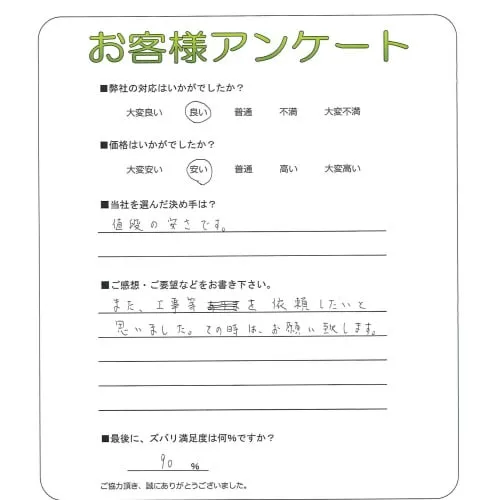 お客様アンケート
■弊社の対応はいかがでしたか？
大変良い 良い 普通 不満 大変不満
■価格はいかがでしたか？
大変安い 安い 普通 高い 大変高い
■当社を選んだ決め手は？
値段の安さです。
■ご感想・ご要望などをお書き下さい。
また、工事等を依頼したいと
思いました。その時は、お願い致します。
■最後に、ズバリ満足度は何%ですか？
90 %
ご協力頂き、誠にありがとうございました。